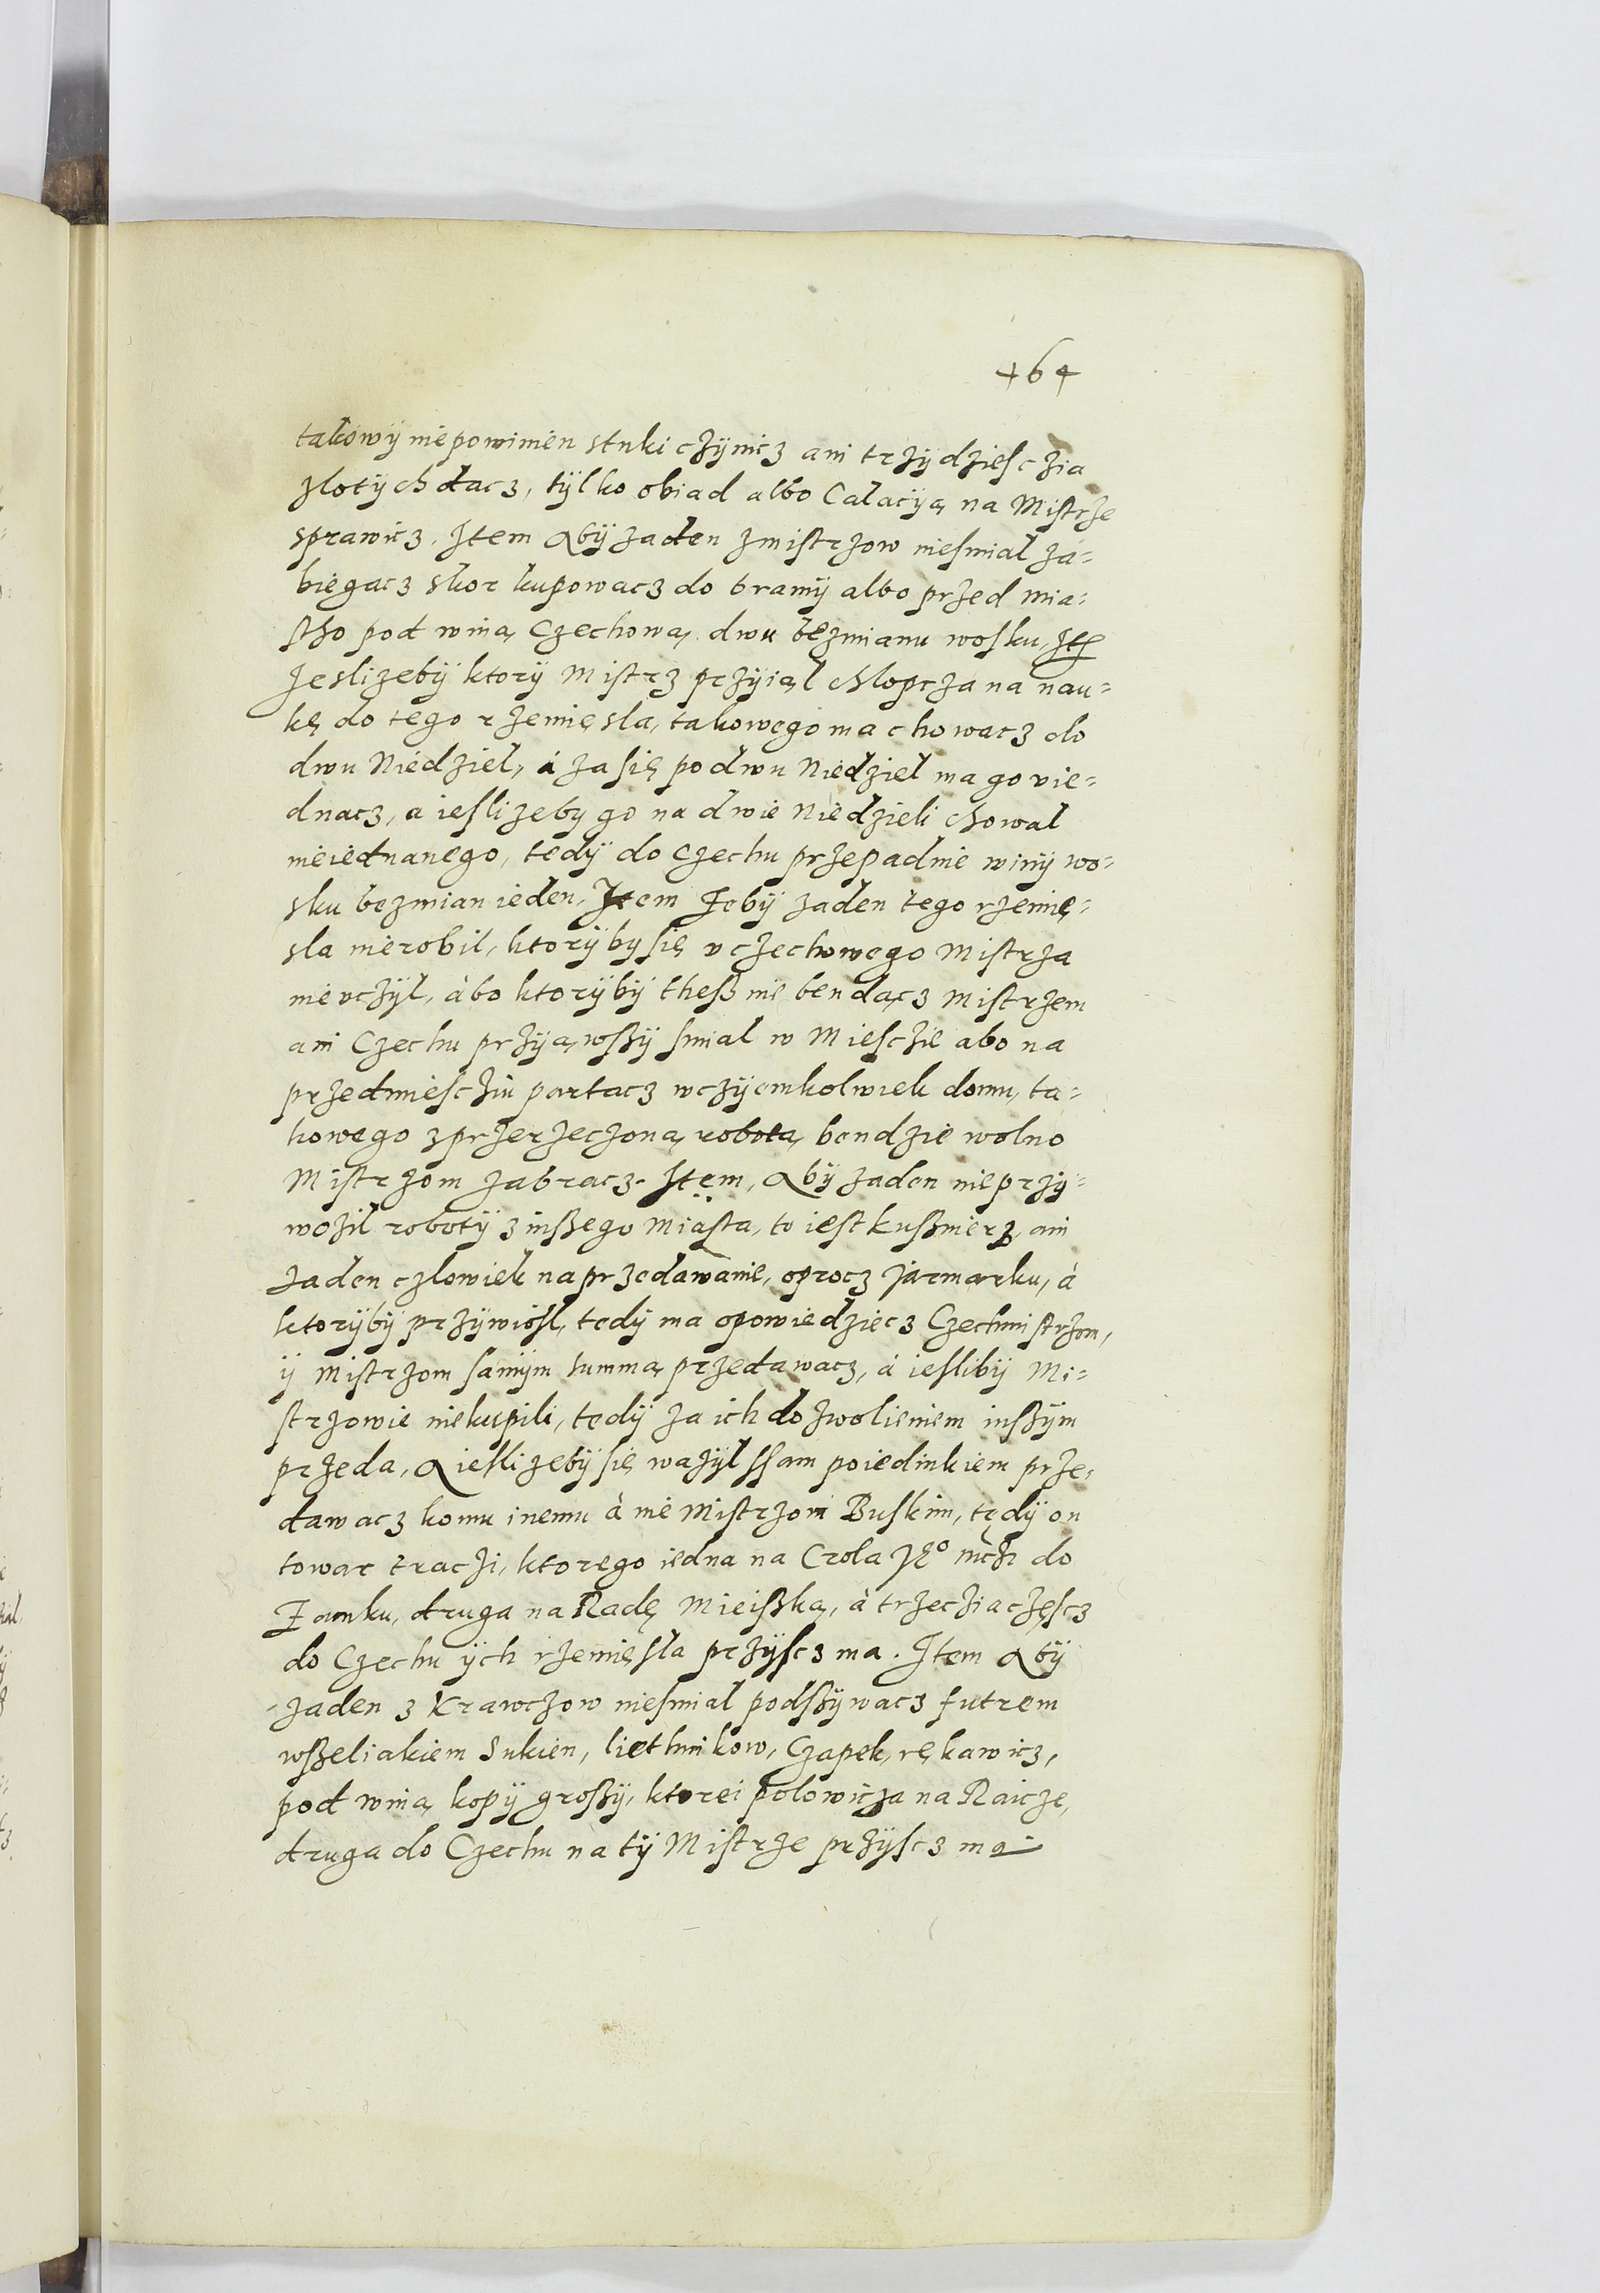 464
takowÿ niepowinien stuki cżÿnicz ani trżÿdżiesc żia
żlotÿch dacz, tÿlko obiad albo Calacÿą na Mistrże
sprawicz. Item Abÿ żaden żmistrżow niesmial żá-
biegacz skor kupowacz do bramÿ albo prżed mia-
stho pod winą Czechową dwu beżmianu wosku, Itē
Jeslizebÿ ktorÿ Mistrz prżÿiąl chlopcża na nau-
kę do tego rżemięsla, takowego ma chowacz do
dwu Niedżiel, á żasię podwu Niedżiel ma go vie-
dnacz, a ieslizeby go na dwie Niedżieli chowal
nieiednanego, tedÿ do Czechu prżepadnie winÿ wo-
sku bezmian ieden, Item Żebÿ żaden tego rżemię-
sla nierobil, ktorÿby się v cżechowego Mistrża
nie vcżÿl, àbo ktorÿbÿ theß nie bendącz Mistrżem
ani Czechu prżÿąwßÿ smial w Miescżie abo na
prżedmiescżiu partacz wcżÿiemkolwiek domu, ta-
kowego zprżerżecżoną robotą bendżie wolno
Mistrżom żabracz. Item, Abÿ żaden nieprżÿ-
wożil robotÿ z inßego Miasta, to iest kußnierz, ani
żaden cżlowiek na przedawanie, oprocz Jarmarku, à
ktorÿbÿ prżÿwiosl, tedÿ ma opowiedżiecz Czechmistrżom,
ÿ Mistrżom samÿm summą prżedawacz, à ieslibÿ Mi-
strżowie niekupili, tedÿ ża ich dożwolieniem inßÿm
prżeda, A ieslizebÿ się ważÿl sam poiedinkiem prże-
dawacz komu inemu à nie Mistrżom Buskim, tędÿ on
towar tracżi, ktorego iedna na Crola Jego mcżi do
Żamku, druga na Radę Mieißką, à trżecżia cżęscz
do Czechu ÿch rżemięsla prżÿscz ma. Item Abÿ
żaden z Krawcżow niesmial podßÿwacz futrem
wßeliakiem Sukien, liethnikow, Czapek, rękawicz,
pod winą kopÿ großÿ, ktorei polowicża na Raicże,
druga do Czechu na tÿ Mistrże prżÿscz ma